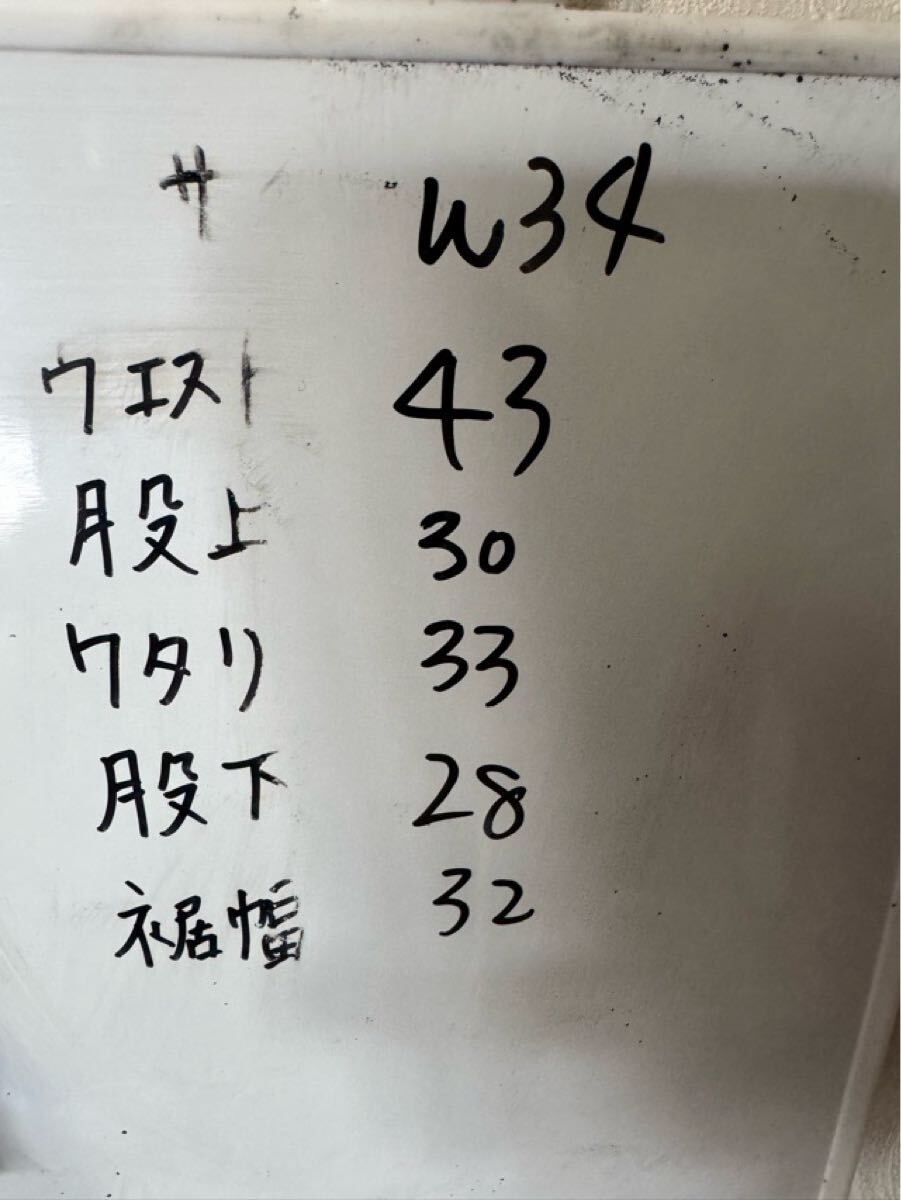 サ W34
ウエスト 43
股上 30
ワタリ 33
股下 28
裾幅 32